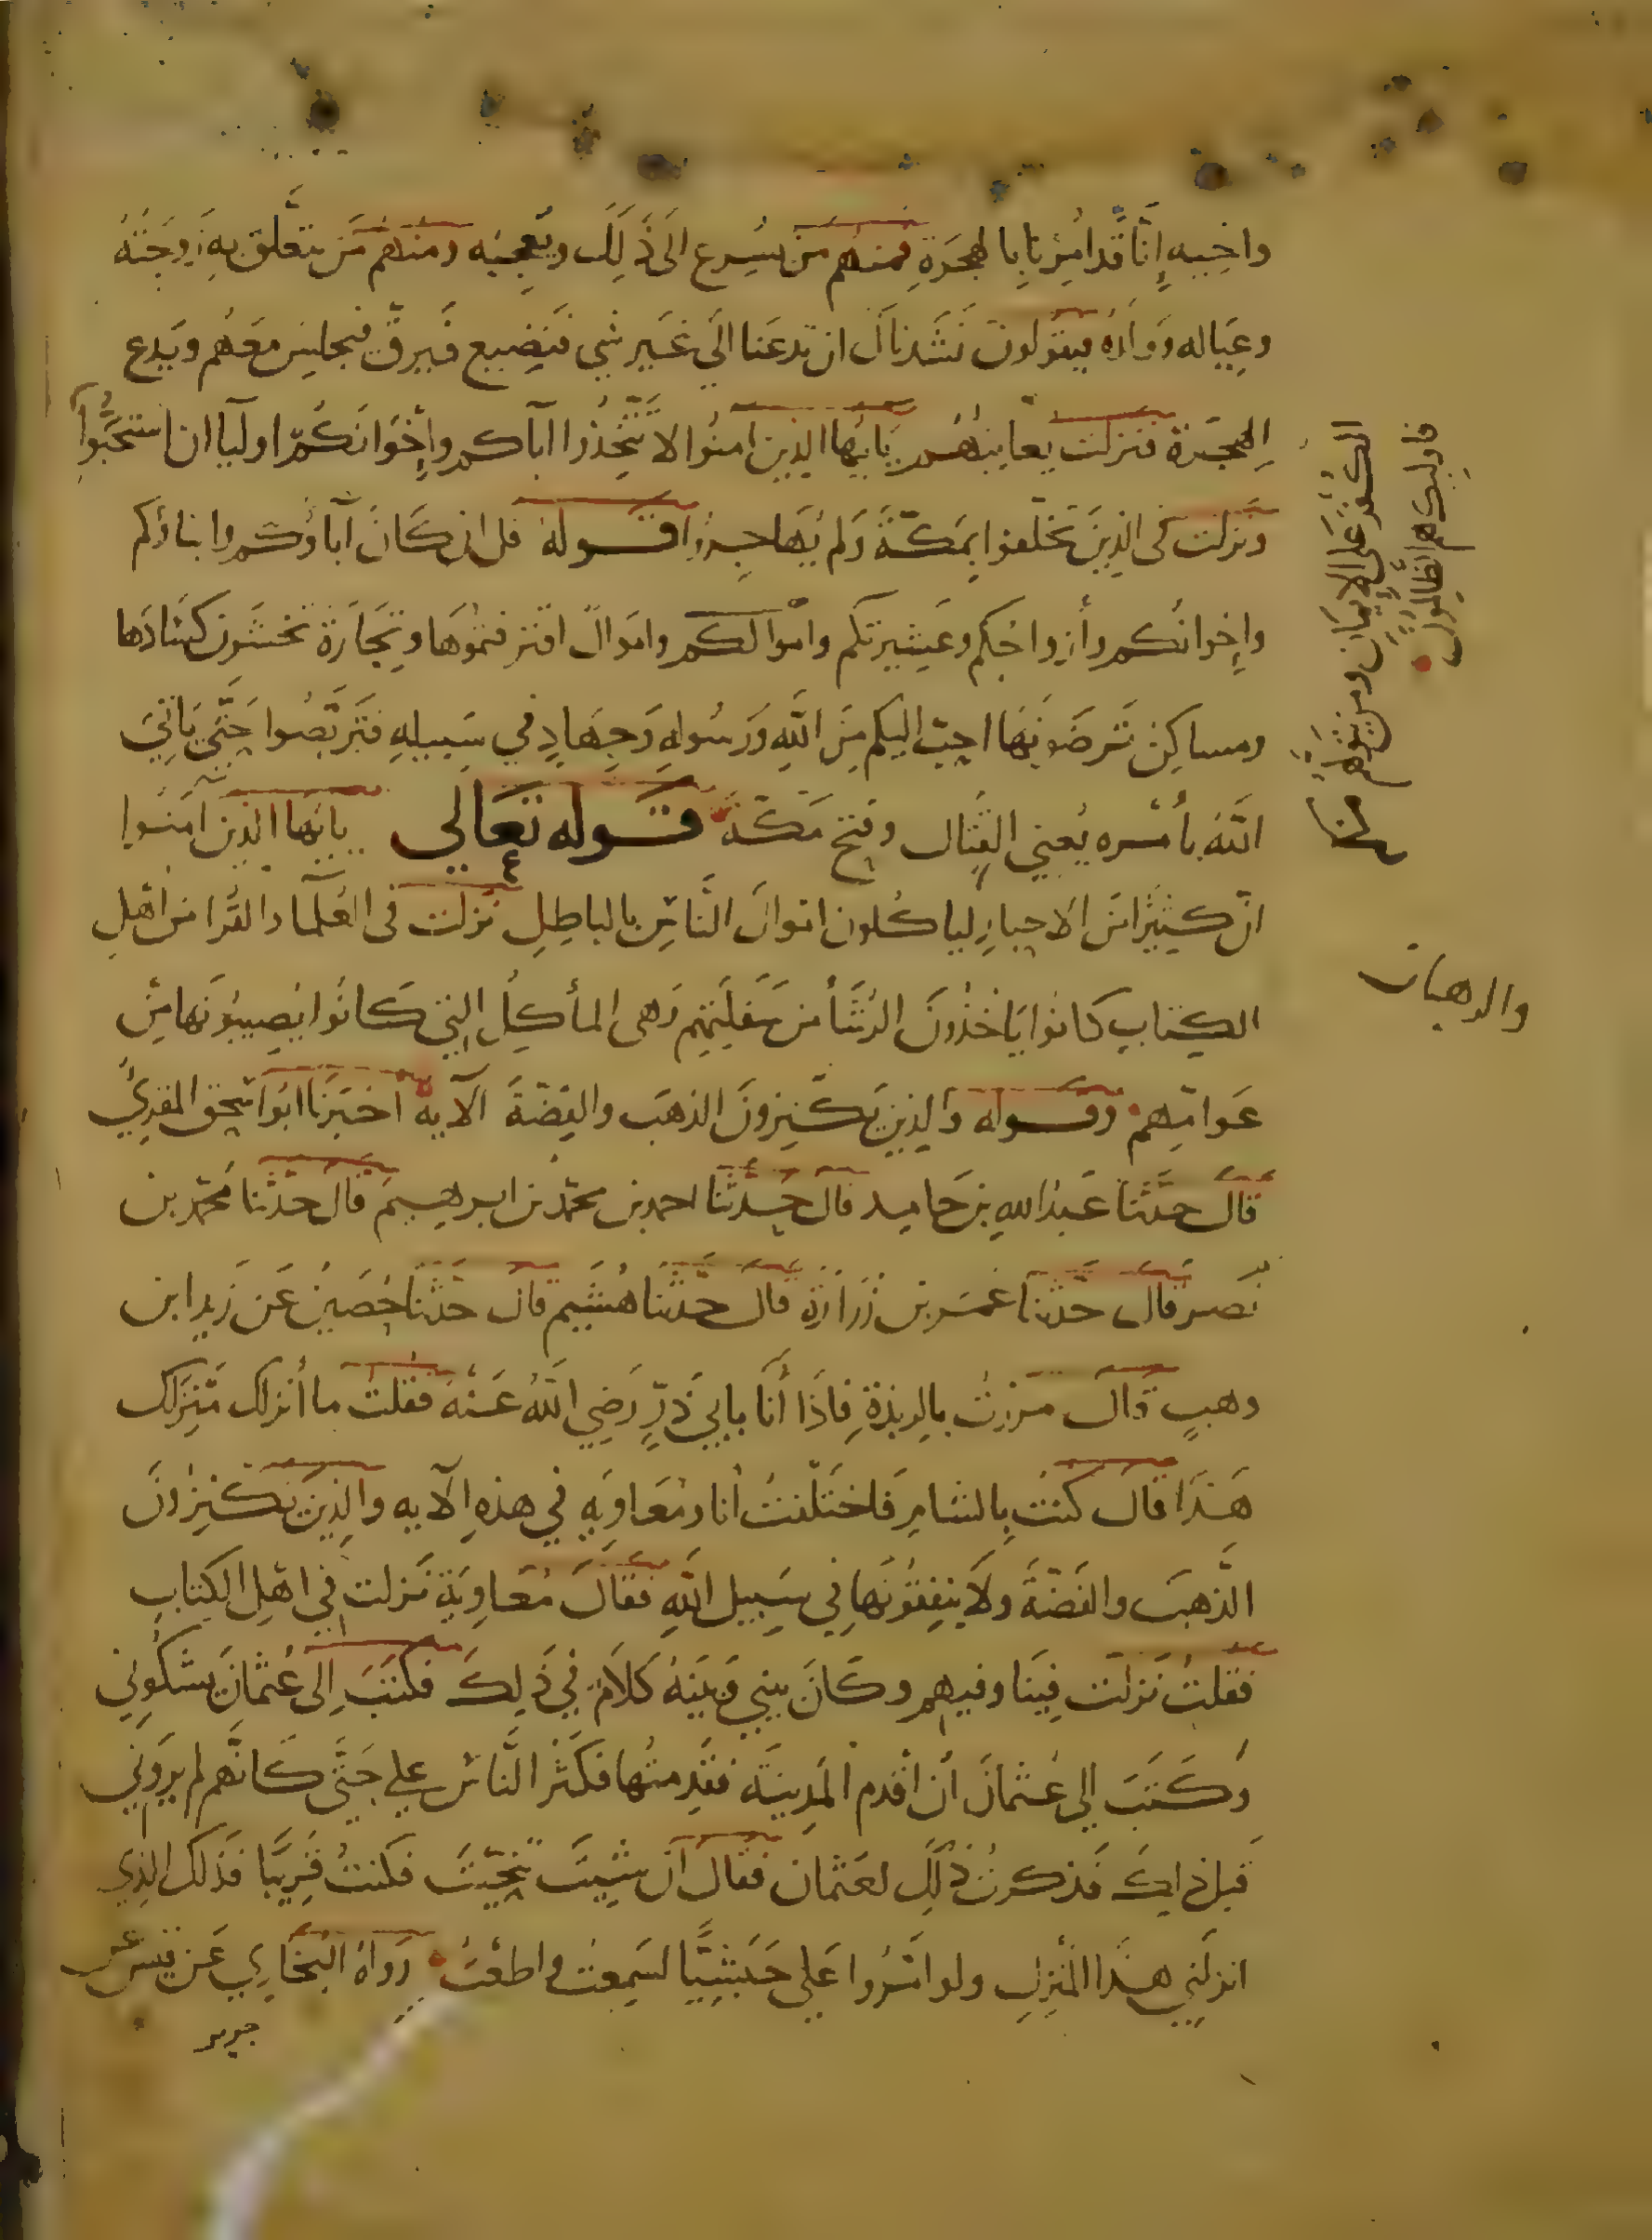 واخيه إنا قد امرنا بالهجرة فمنهم من يسرع الى ذلك ويعجبه ومنهم من يتعلق به زوجته
وعياله وولده فيقولون نشدناك ان تدعنا الي غير شي فنضيع فيرق فيجلس معهم ويدع
الهجرة فنزلت يعاتبهم يا يها الذين امنوا لا تتخذوا ااباكم وإخوانكم اوليا ان استحبوا
الكفر على الايمان ومن يتولهم منكم
فاوليك هم الظالمون
ونزلت في الذين تخلفوا بمكة ولم يهاجروا قوله قل ان كان آباؤكم وابناؤكم
وإخوانكم وأزواجكم وعشيرتكم واموالكم واموال اقترفتموها وتجارة تخشون كسادها
ومساكن ترضونها احب اليكم من الله ورسوله وجهاد في سبيله فتربصوا حتى ياتي
الله بأمره يعني القتال وفتح مكة قوله تعالي يايها الذين آمنوا
ان كثيرا من الاحبار لياكلون اموال الناس بالباطل نزلت في العلما والقرا من اهل
والرهبان
الكتاب كانوا ياخذون الرشا من سفلتهم وهي المأكل التي كانوا يصيبونها من
عوامهم وقوله والذين يكنزون الذهب والفضة الآيه أخبرنا ابو اسحق المقري
قال حدثنا عبد الله بن حامد قال حدثنا احمد بن محمد بن ابرهيم قال حدثنا محمد بن
نصر قال حدثنا عمر بن زرارة قال حدثنا هشيم قال حدثنا حصين عن زيد ابن
وهب قال مررت بالربذة فاذا أنا بابي ذر رضي الله عنه فقلت ما أنزلك منزلك
هذا قال كنت بالشام فاختلفت أنا ومعاويه في هذه الآيه والذين يكنزون
الذهب والفضة ولا ينفقونها في سبيل الله فقال معاوية نزلت في اهل الكتاب
فقلت نزلت فينا وفيهم وكان بيني وبينه كلام في ذلك فكتب إلى عثمان يشكوني
وكتب الي عثمان أن اقدم المدينة فقدمتها فكثر الناس علي حتى كانهم لم يروني
قبل ذلك فذكرت ذلك لعثمان فقال ان شيت تنحيت فكنت قريبا فذلك الذي
انزلني هذا المنزل ولو امروا علي حبشيا لسمعت واطعت رواه البخاري عن قيس عن
جرير